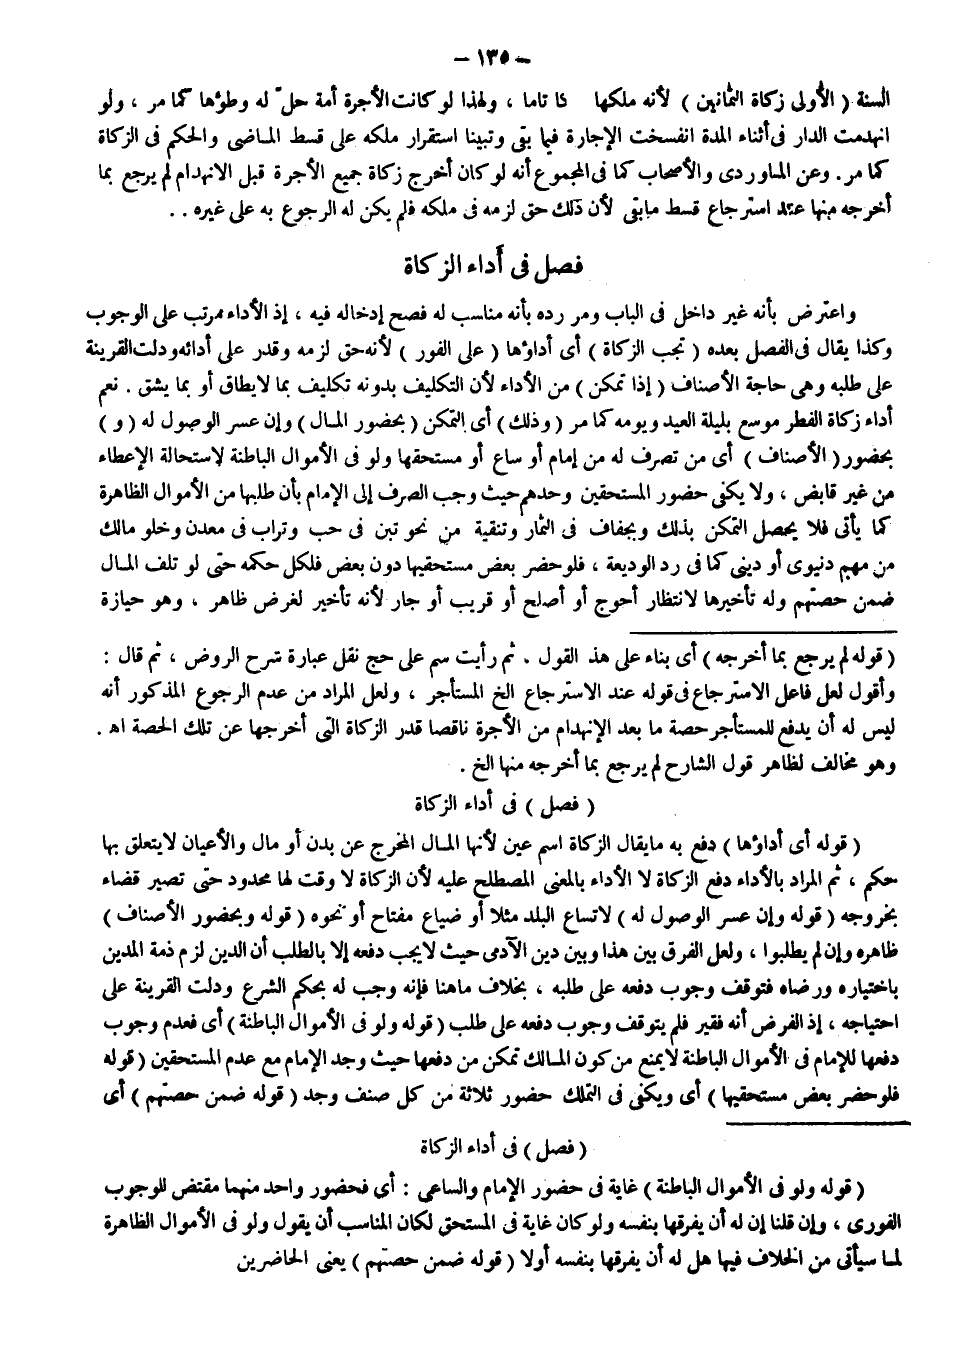 - ١٣٥ -
السنة ( الأولى زكاة الثمانين ) لأنه ملكها تاما ، ولهذا لو كانت الأجرة أمة حلّ له وطؤها كما مر ، ولو
انهدمت الدار فى أثناء المدة انفسخت الإجارة فيما بقى وتبينا استقرار ملكه على قسط المـاضى والحكم فى الزكاة
كما مر . وعن المـاوردى والأصحاب كما فى المجموع أنه لو كان أخرج زكاة جميع الأجرة قبل الانهدام لم يرجع بما
أخرجه منها عند استرجاع قسط مابقى لأن ذلك حق لزمه فى ملكه فلم يكن له الرجوع به على غيره . .
فصل فى أَداء الزكاة
واعترض بأنه غير داخل فى الباب ومر رده بأنه مناسب له فصح إدخاله فيه ، إذ الأداء مرتب على الوجوب
وكذا يقال فى الفصل بعده ( تجب الزكاة ) أى أداؤها ( على الفور ) لأنه حق لزمه وقدر على أدائه ودلت القرينة
على طلبه وهى حاجة الأصناف ( إذا تمكن ) من الأداء لأن التكليف بدونه تكليف بما لايطاق أو بما يشق . نعم
أداء زكاة الفطر موسع بليلة العيد ويومه كما مر ( وذلك ) أى التمكن ( بحضور المـال ) وإن عسر الوصول له ( و )
بحضور ( الأصناف ) أى من تصرف له من إمام أو ساع أو مستحقها ولو فى الأموال الباطنة لاستحالة الإعطاء
من غير قابض ، ولا يكفى حضور المستحقين وحدهم حيث وجب الصرف إلى الإمام بأن طلبها من الأموال الظاهرة
كما يأتى فلا يحصل التمكن بذلك وبجفاف فى الثمار وتنقية من نحو تبن فى حب وتراب فى معدن وخلو مالك
من مهم دنيوى أو دينى كما فى رد الوديعة ، فلو حضر بعض مستحقيها دون بعض فلكل حكمه حتى لو تلف المـال
ضمن حصتهم وله تأخيرها لانتظار أحوج أو أصلح أو قريب أو جار لأنه تأخير لغرض ظاهر ، وهو حيازة
( قوله لم يرجع بما أخرجه ) أى بناء على هذ القول . ثم رأيت سم على حج نقل عبارة شرح الروض ، ثم قال :
وأقول لعل فاعل الاسترجاع فى قوله عند الاسترجاع الخ المستأجر ، ولعل المراد من عدم الرجوع المذكور أنه
ليس له أن يدفع للمستأجر حصة ما بعد الإنهدام من الأجرة ناقصا قدر الزكاة التى أخرجها عن تلك الحصة اه .
وهو مخالف لظاهر قول الشارح لم يرجع بما أخرجه منها الخ .
( فصل ) فى أداء الزكاة
( قوله أى أداؤها ) دفع به مايقال الزكاة اسم عين لأنها المـال المخرج عن بدن أو مال والأعيان لايتعلق بها
حكم ، ثم المراد بالأداء دفع الزكاة لا الأداء بالمعنى المصطلح عليه لأن الزكاة لا وقت لها محدود حتى تصير قضاء
بخروجه ( قوله وإن عسر الوصول له ) لاتساع البلد مثلا أو ضياع مفتاح أو نحوه ( قوله وبحضور الأصناف )
ظاهره وإن لم يطلبوا ، ولعل الفرق بين هذا وبين دين الآدمى حيث لايجب دفعه إلا بالطلب أن الدين لزم ذمة المدين
باختياره ورضاه فتوقف وجوب دفعه على طلبه ، بخلاف ماهنا فإنه وجب له بحكم الشرع ودلت القرينة على
احتياجه ، إذ الفرض أنه فقير فلم يتوقف وجوب دفعه على طلب ( قوله ولو فى الأموال الباطنة ) أى فعدم وجوب
دفعها للإمام فى الأموال الباطنة لايمنع من كون المـالك تمكن من دفعها حيث وجد الإمام مع عدم المستحقين ( قوله
فلو حضر بعض مستحقيها ) أى ويكفى فى التملك حضور ثلاثة من كل صنف وجد ( قوله ضمن حصتهم ) أى
( فصل ) فى أداء الزكاة
( قوله ولو فى الأموال الباطنة ) غاية فى حضور الإمام والساعى : أى فحضور واحد منهما مقتض للوجوب
الفورى ، وإن قلنا إن له أن يفرقها بنفسه ولو كان غاية فى المستحق لكان المناسب أن يقول ولو فى الأموال الظاهرة
لمـا سيأتى من الخلاف فيها هل له أن يفرقها بنفسه أولا ( قوله ضمن حصتهم ) يعنى الحاضرين